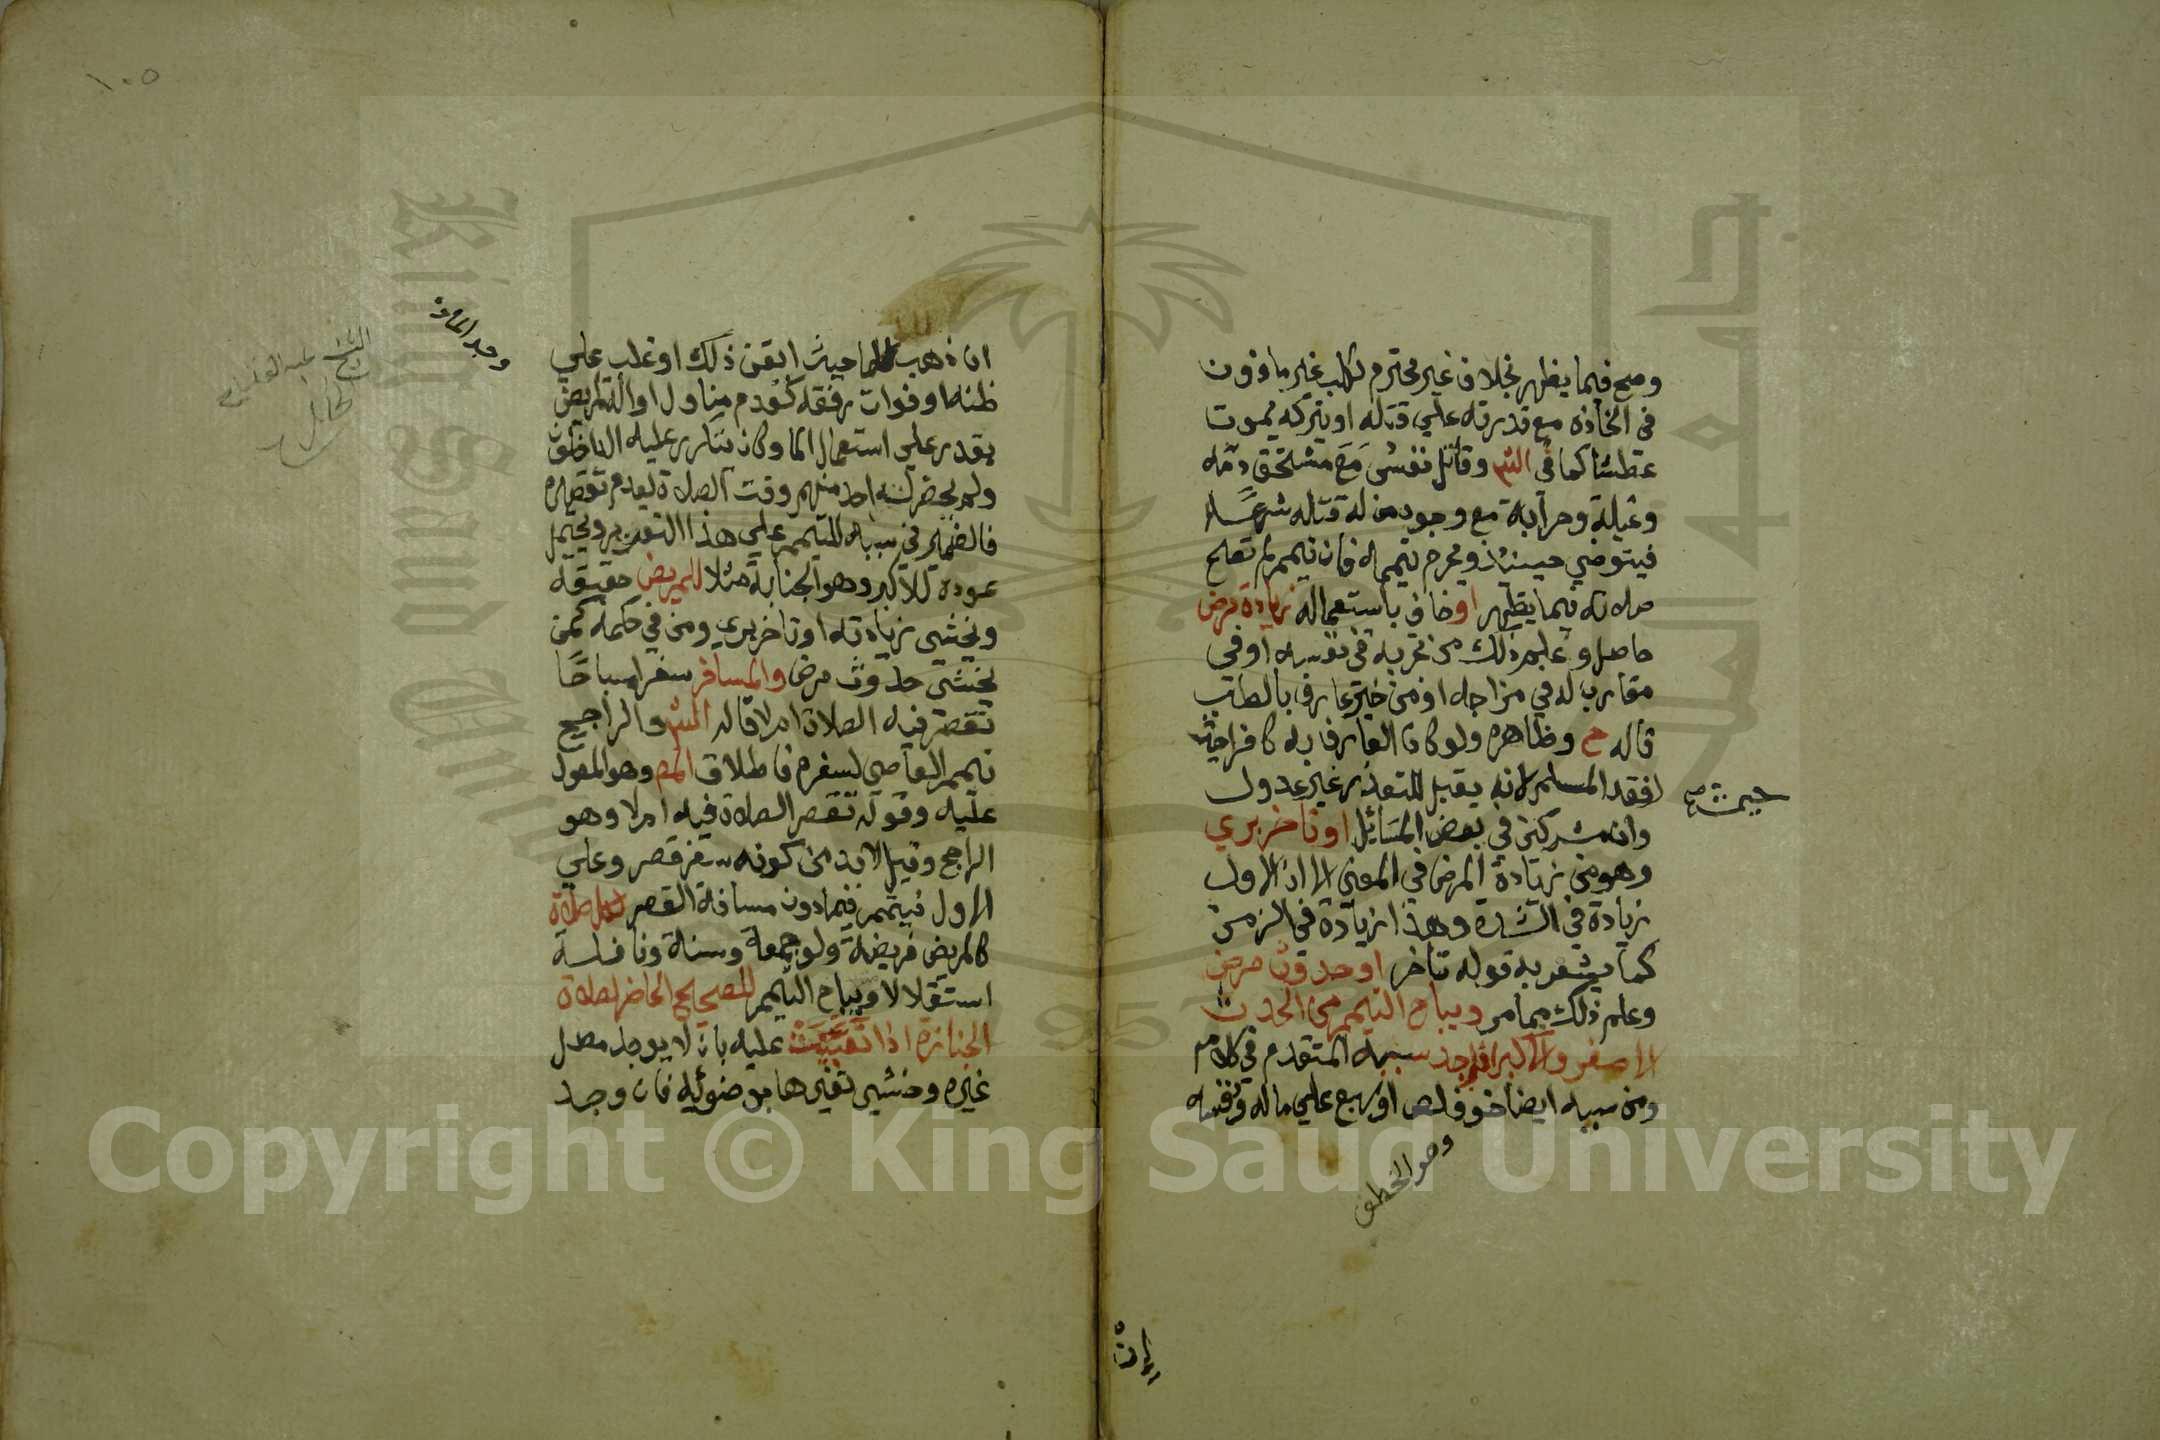 وصح فيما يظهر بخلاف غير محترم ككلب غير ماذون
في اتخاذه مع قدرته علي قتله او يتركه يموت
عطشا كما في الشم وقاتل نفس مع مستحق دمه
وغيلة وحرابة مع وجود من له قتله شرعا
فيتوضي حينئذ ويحرم تيممه فان تيمم لم تصح
صلاته فيما يظهر او خاف باستعماله زيادة مرض
حاصل وعلم ذلك من تجربة في نفسه او في
مقارب له في مزاجه او من خبر عارف بالطب
قاله ح وظاهره ولو كان العارف به كافرا حيث
حيث صح
فقد المسلم لانه يقبل للتعذر غير عدول
وان مشركين في بعض المسائل او تاخر بري
وهو من زيادة المرض في المعني الا ان الاول
زيادة في الشدة وهذا زيادة في الزمن
كما يشعر به قوله تاخر او حدوث مرض
وعلم ذلك بما مر ويباح التيمم من الحدث
الاصغر والاكبر اذا وجد سببه المتقدم في كلامه
ومن سببه ايضا خوف لص او سبع علي ماله ونفسه
وهو الخطف
١٠٥
ان ذهب للما حيث اتقن ذلك او غلب علي
وجد الماء
ظنه او فوات رفقة كعدم مناول او الة لمريض
يقدر علي استعمال الما وكان تتكرر عليه الناس
ولم يحضر له احد منهم وقت الصلاة لعدم تقصيره
فالضمير في سببه للتيمم علي هذا التقدير ويحتمل
عوده للاكبر وهو الجنابة مثلا للمريض حقيقه
ويخشي زيادته او تاخر بري ومن في حكمه كمن
يخشي حدوث مرض والمسافر سفرا مباحا
تقصر فيه الصلاة ام لا قاله الشم والراجح
تيمم العاصي لسفره فاطلاق المص وهو المعول
عليه وقوله تقصر الصلاة فيه ام لا وهو
الراجح وقيل لابد من كونه سفر قصر وعلي
الاول فيتيمم فيما دون مسافة القصر لكل صلاة
كالمريض فريضة ولو جمعة وسنة ونافلة
استقلالا ويباح التيمم للصحيح الحاضر لصلاة
الجنازة اذا تعينت عليه بان لا يوجد مصل
غيره وخشي تغيرها بوضوئيه فان وجد